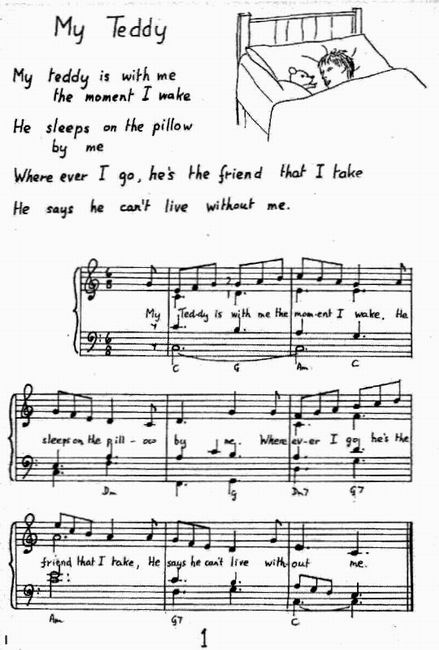 My Teddy
My teddy is with me
the moment I wake
He sleeps on the pillow
by me
Where ever I go, he's the friend that I take
He says he can't live without me.
My Ted-dy is with me the mom-ent I wake, He
C G Am C
sleeps on the pill-ow by me. Where ev-er I go, he's the
Dm G Dm7 G7
friend that I take, He says he can't live with-out me.
Am G7 C
1